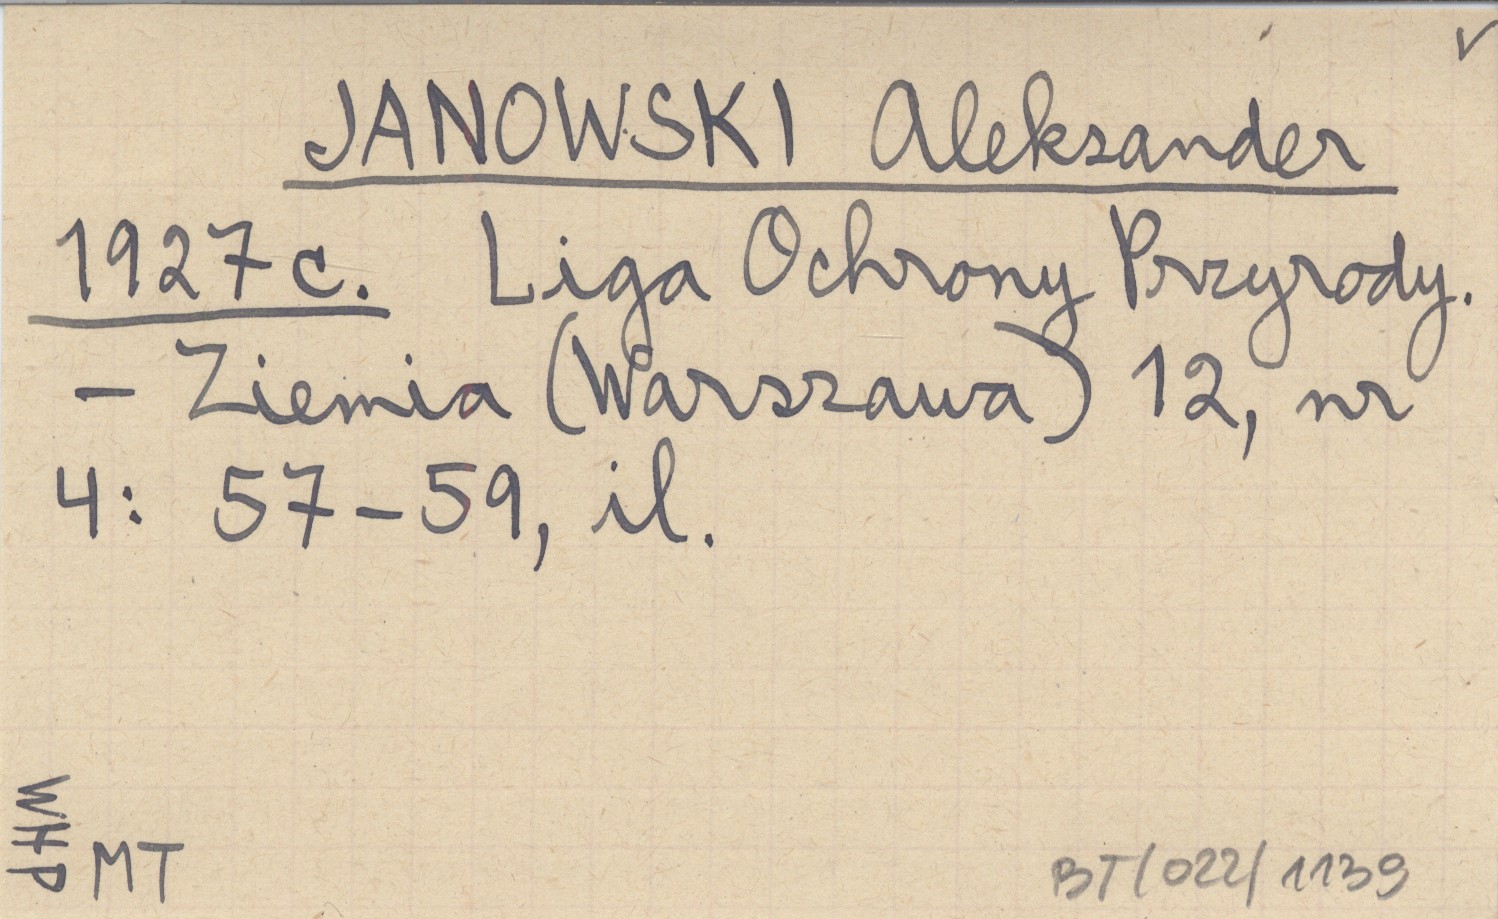 ✓
JANOWSKI Aleksander
1927c. Liga Ochrony Przyrody.
– Ziemia (Warszawa) 12, nr
4: 57–59, il.
WHP
MT
BT/022/1139